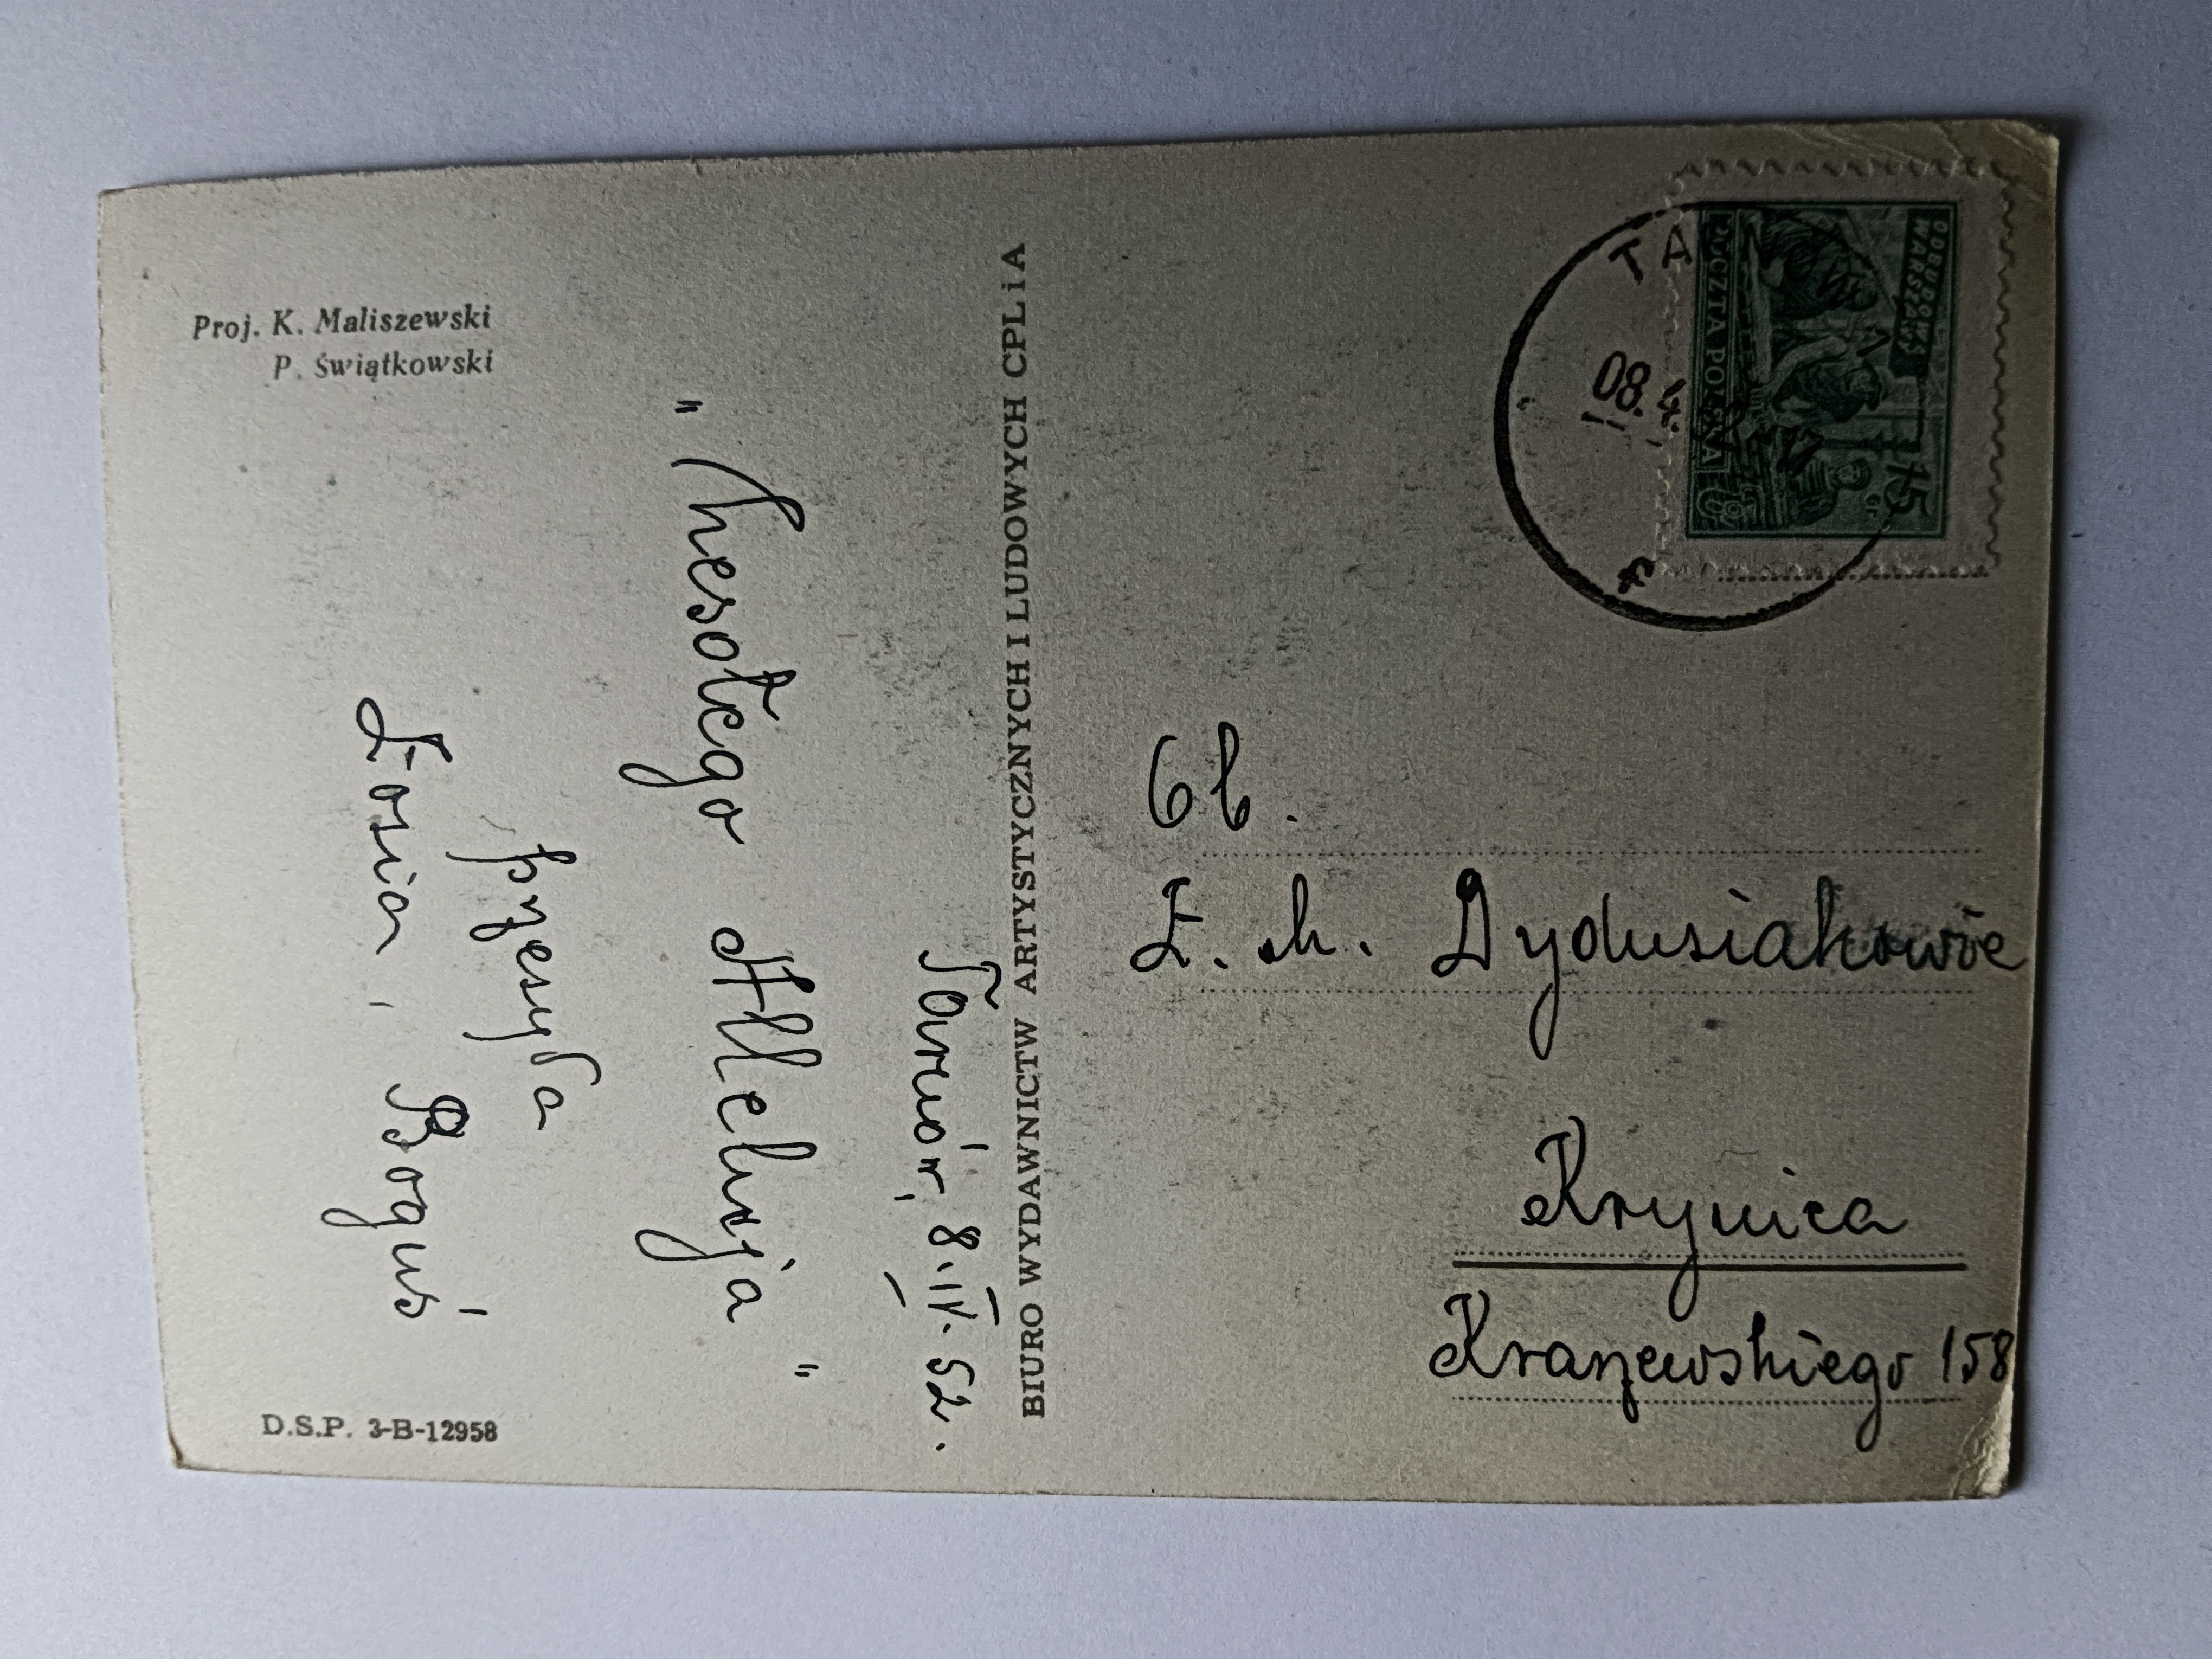 Proj. K. Maliszewski
P. Świątkowski
Tarnów, 8.IV.52.
"Wesołego Alleluja"
przesyła
Zosia, Boguś
D.S.P. 3-B-12958
BIURO WYDAWNICTW ARTYSTYCZNYCH I LUDOWYCH CPLiA
ODBUDOWA
WARSZAWY
45
gr
POCZTA POLSKA
TA
08.4.
Ob.
Z. M. Dydusiakowie
Krynica
Kraszewskiego 158